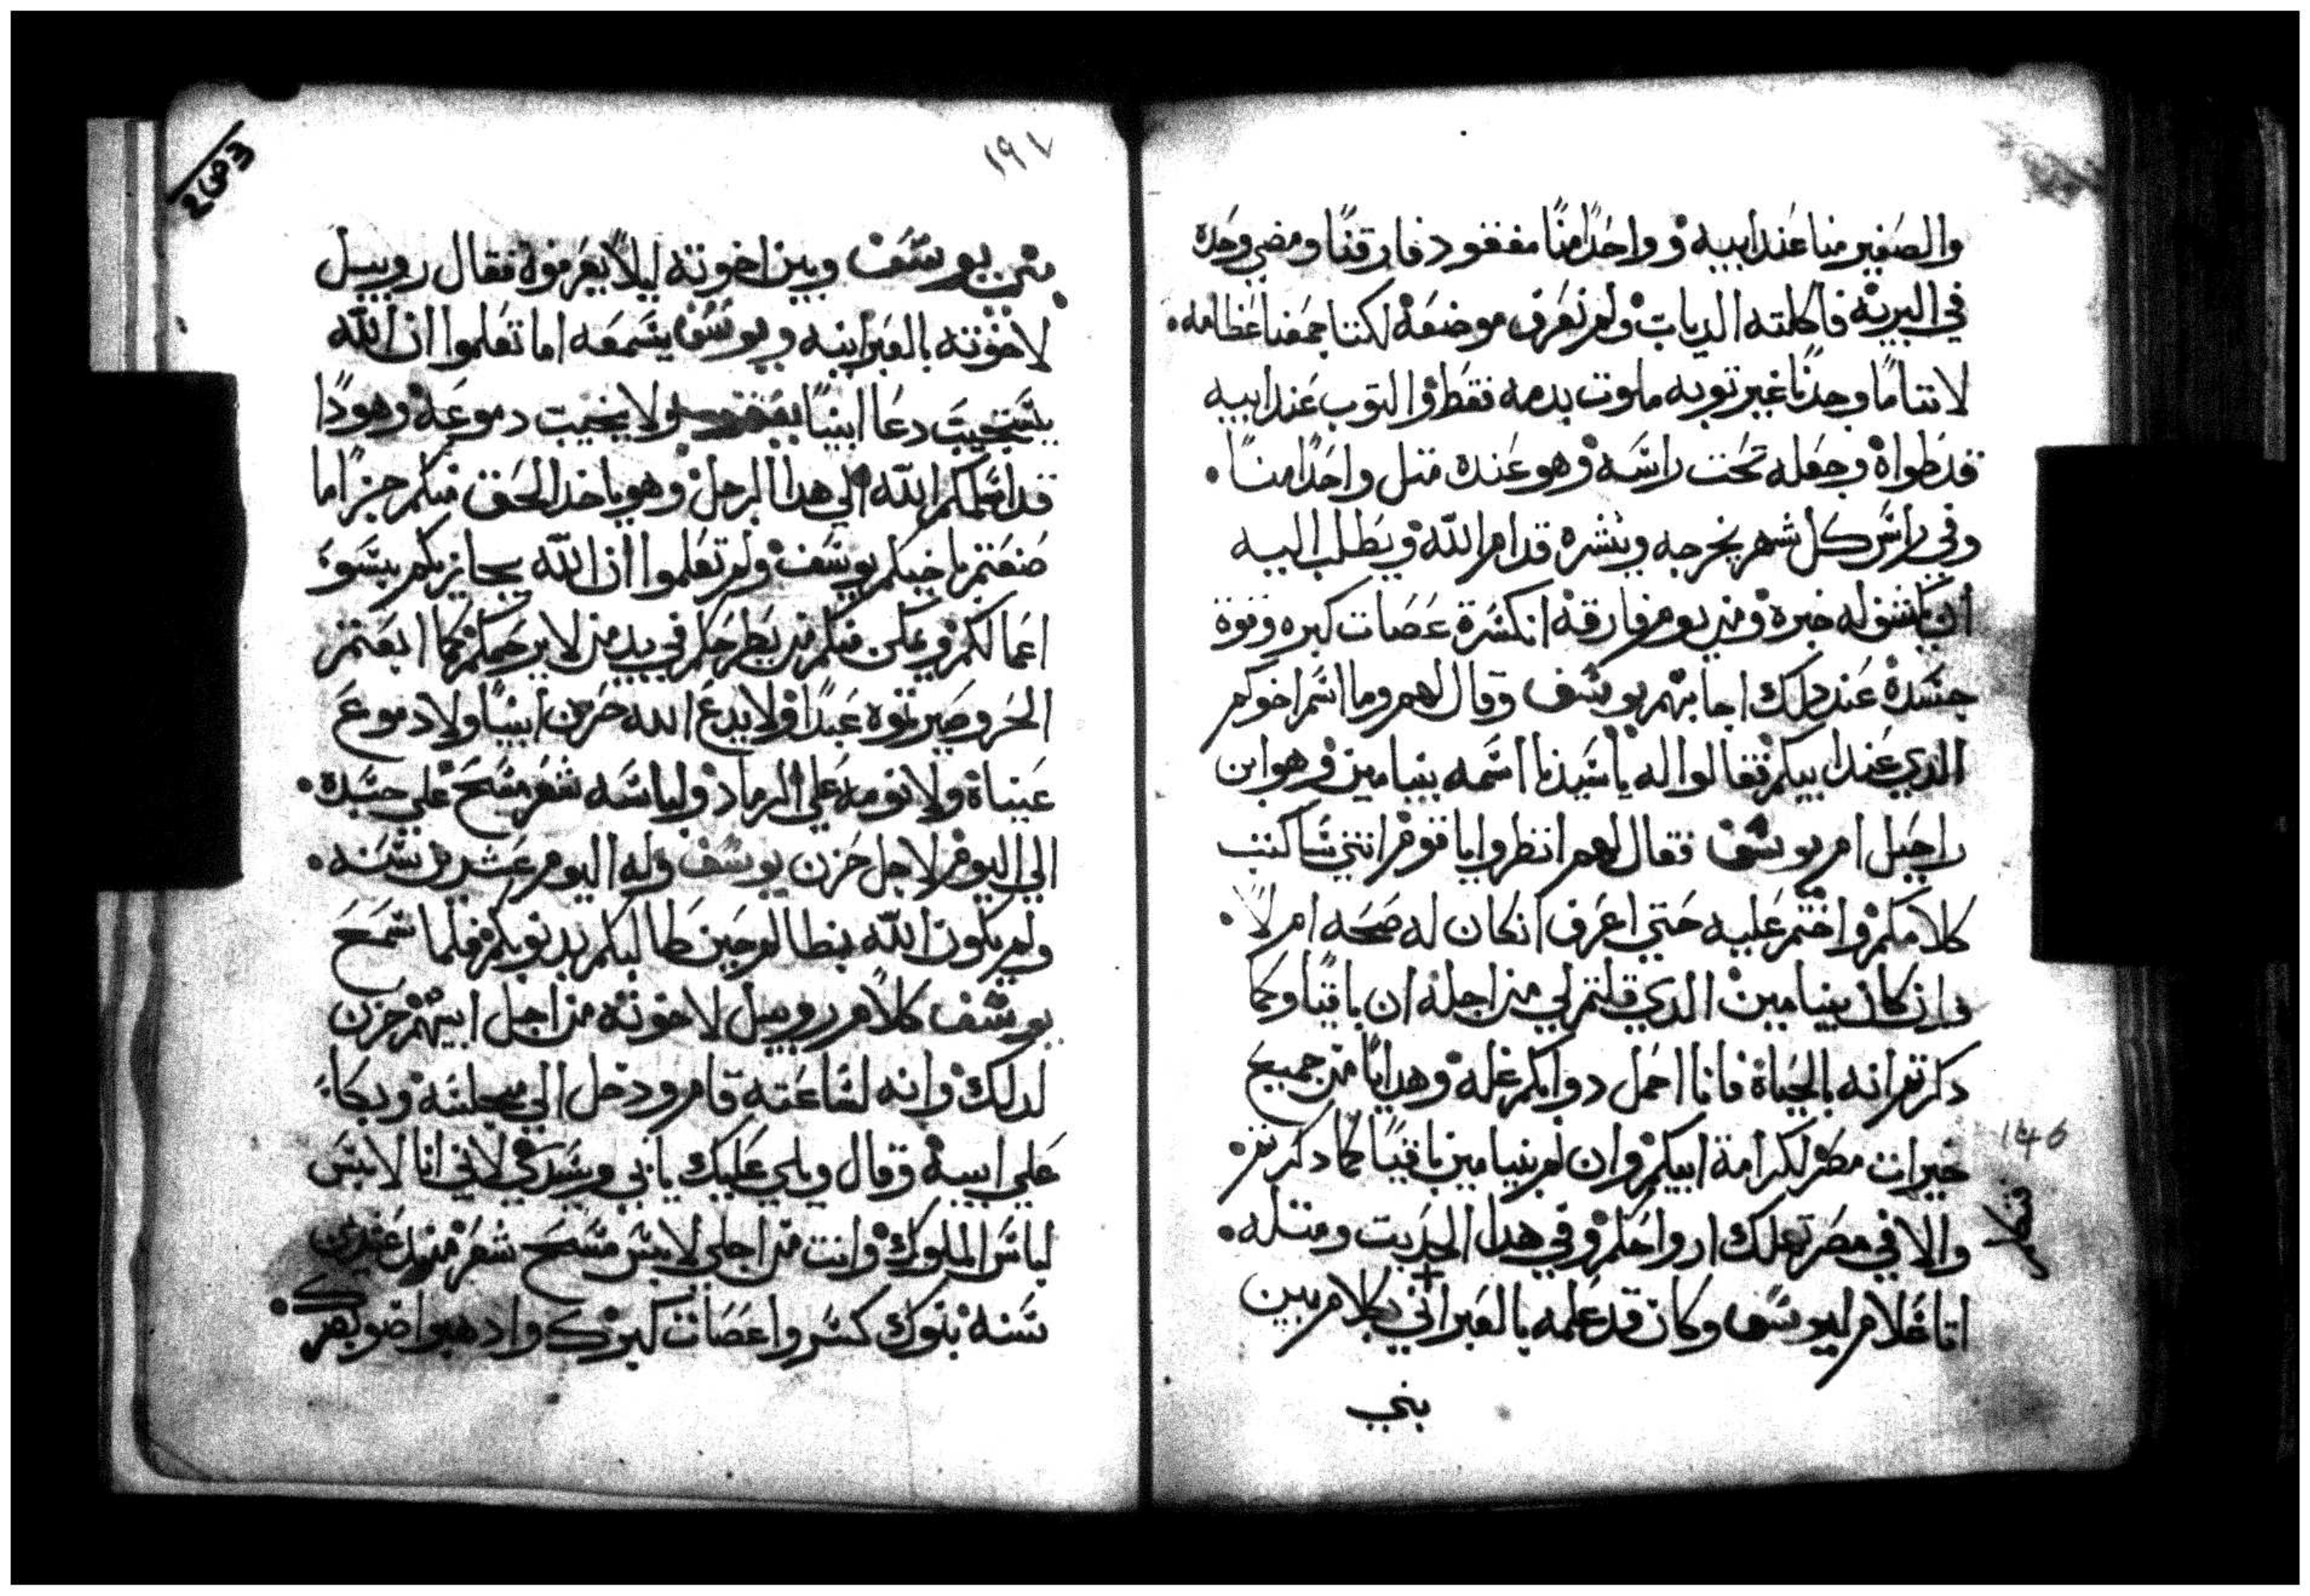 والصغير منا عند ابيه وواحدا منا مفقود فارقنا ومضي وحده
في البرية فاكلته الدياب ولم نعرف موضعه لكننا جمعنا عظامه
لاننا ما وجدنا غير توبه ملوت بدمه فقط والتوب عند ابيه
قد طواه وجعله تحت راسه وهو عنده متل واحدا منا
وفي راس كل شهر يخرجه وينشره قدام الله ويطلب اليه
ان يكشف له خبره ومن يوم فارقه انكسرة عصات كبره وقوة
جسده عند دلك اجابهم يوسف وقال لهم وما اسم اخوكم
الدي عند ابيكم فقالوا له يا سيدنا اسمه بنيامين وهو ابن
راحيل ام يوسف فقال لهم انظروا يا قوم انني ساكتب
كلامكم واختم عليه حتي اعرف ان كان له صحه ام لا
وان كان بنيامين الدي قلتم لي من اجله ان باقيا وكما
دكرتم انه بالحياة فانا احمل دوابكم غله وهدايا من جميع
خيرات مصر لكرامة ابيكم وان لم بنيامين باقيا كما دكرتم
والا في مصر تهلك ارواحكم وفي هدا الحديت ومتله
اتا غلام ليوسف وكان قد علمه بالعبراني بكلام بين
بني
146
١٩٧
بني يوسف وبين اخوته ليلا يعرفوه فقال روبيل
لاخوته بالعبرانيه ويوسف يسمعه اما تعلموا ان الله
يستجيب دعا ابينا ولا يخيب دموعه وهودا
قد اسلمكم الله الي هدا الرجل وهو ياخد الحق منكم جزا ما
صنعتم باخيكم يوسف ولم تعلموا ان الله يجازيكم بسو
اعمالكم ويمكن منكم من يطرحكم في يد من لا يرحمكم كما ابعتم
الحر وصيرتوه عبدا ولا يدع الله حزن ابينا ولا دموع
عيناه ولا نومه علي الرماد ولباسه شعر مسح علي جسده
الي اليوم لاجل حزن يوسف وله اليوم عشرين سنه
ولم يكون الله بنطالم حين طالبكم بدنوبكم فلما سمع
يوسف كلام روبيل لاخوته من اجل ابيهم حزن
لدلك وانه لساعته قام ودخل الي مجلسه وبكا
علي ابيه وقال ويلي عليك يابي وسيدي لاني انا لابس
لباس الملوك وانت من اجلي لابس مسح شعر مند عشرين
سنه بنوك كسروا عصات كبرك وادهبوا ضو بصرك